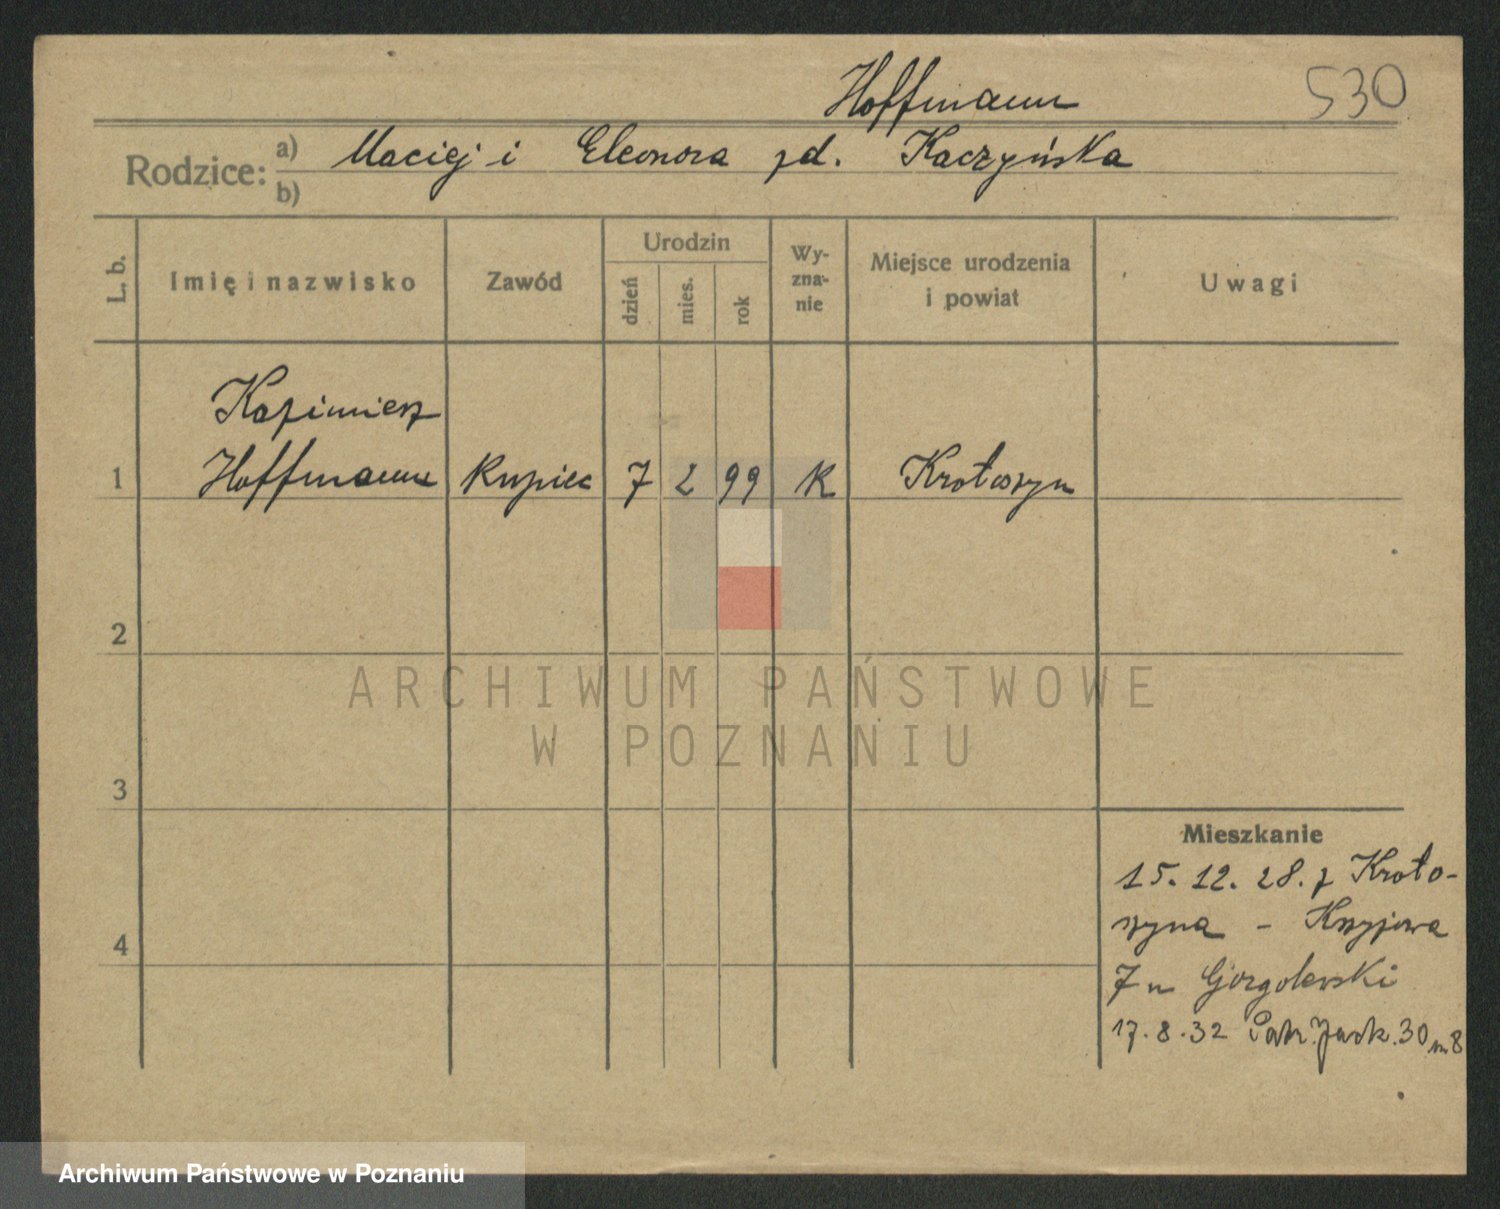 Hoffmann 530
Rodzice: a) Maciej i Eleonora zd. Kaczyńska
b)
L. b.
Imię i nazwisko
Zawód
Urodzin
dzień
mies.
rok
Wy-
zna-
nie
Miejsce urodzenia
i powiat
Uwagi
Kazimierz
1 Hoffmann Kupiec 7 2 99 K Krotoszyn
2
ARCHIWUM PAŃSTWOWE
W POZNANIU
3
Mieszkanie
15. 12. 28. z Kroto-
szyna -
4
7 u Gorgolewski
17. 8. 32 Patr. Jack. 30 m 8
Archiwum Państwowe w Poznaniu